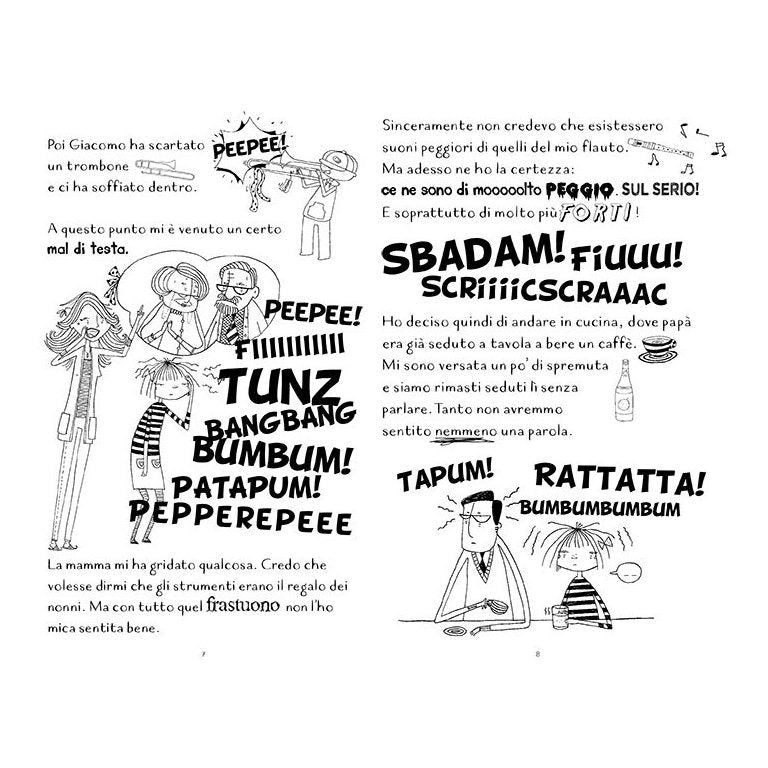 Poi Giacomo ha scartato
un trombone
e ci ha soffiato dentro.
PEEPEE!
A questo punto mi è venuto un certo
mal di testa.
PEEPEE!
FIIIIIIIIIII
TUNZ
BANGBANG
BUMBUM!
PATAPUM!
PEPPEREPEEE
La mamma mi ha gridato qualcosa. Credo che
volesse dirmi che gli strumenti erano il regalo dei
nonni. Ma con tutto quel frastuono non l'ho
mica sentita bene.
7
Sinceramente non credevo che esistessero
suoni peggiori di quelli del mio flauto.
Ma adesso ne ho la certezza:
ce ne sono di mooooolto PEGGIO. SUL SERIO!
E soprattutto di molto più FORTI!
SBADAM! FIUUU!
SCRIIIICSCRAAAC
Ho deciso quindi di andare in cucina, dove papà
era già seduto a tavola a bere un caffè.
Mi sono versata un po' di spremuta
e siamo rimasti seduti lì senza
parlare. Tanto non avremmo
sentito nemmeno una parola.
TAPUM!
RATTATTA!
BUMBUMBUMBUM
8